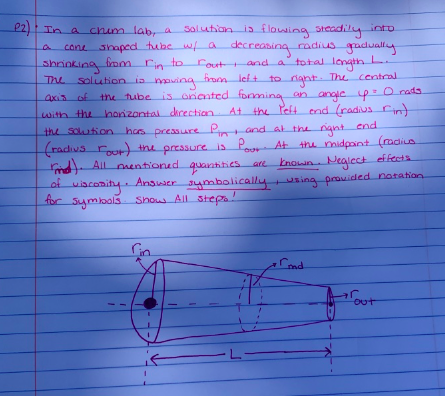 P2) • In a chem lab, a solution is flowing steadily into
a cone shaped tube w/ a decreasing radius gradually
shrinking from r_in to r_out, and a total length L.
The solution is moving from left to right. The central
axis of the tube is oriented forming an angle φ = 0 rads
with the horizontal direction. At the left end (radius r_in)
the solution has pressure P_in, and at the right end
(radius r_out) the pressure is P_out. At the midpoint (radius
r_md). All mentioned quantities are known. Neglect effects
of viscosity. Answer symbolically, using provided notation
for symbols. Show All steps!
r_in
r_md
r_out
L